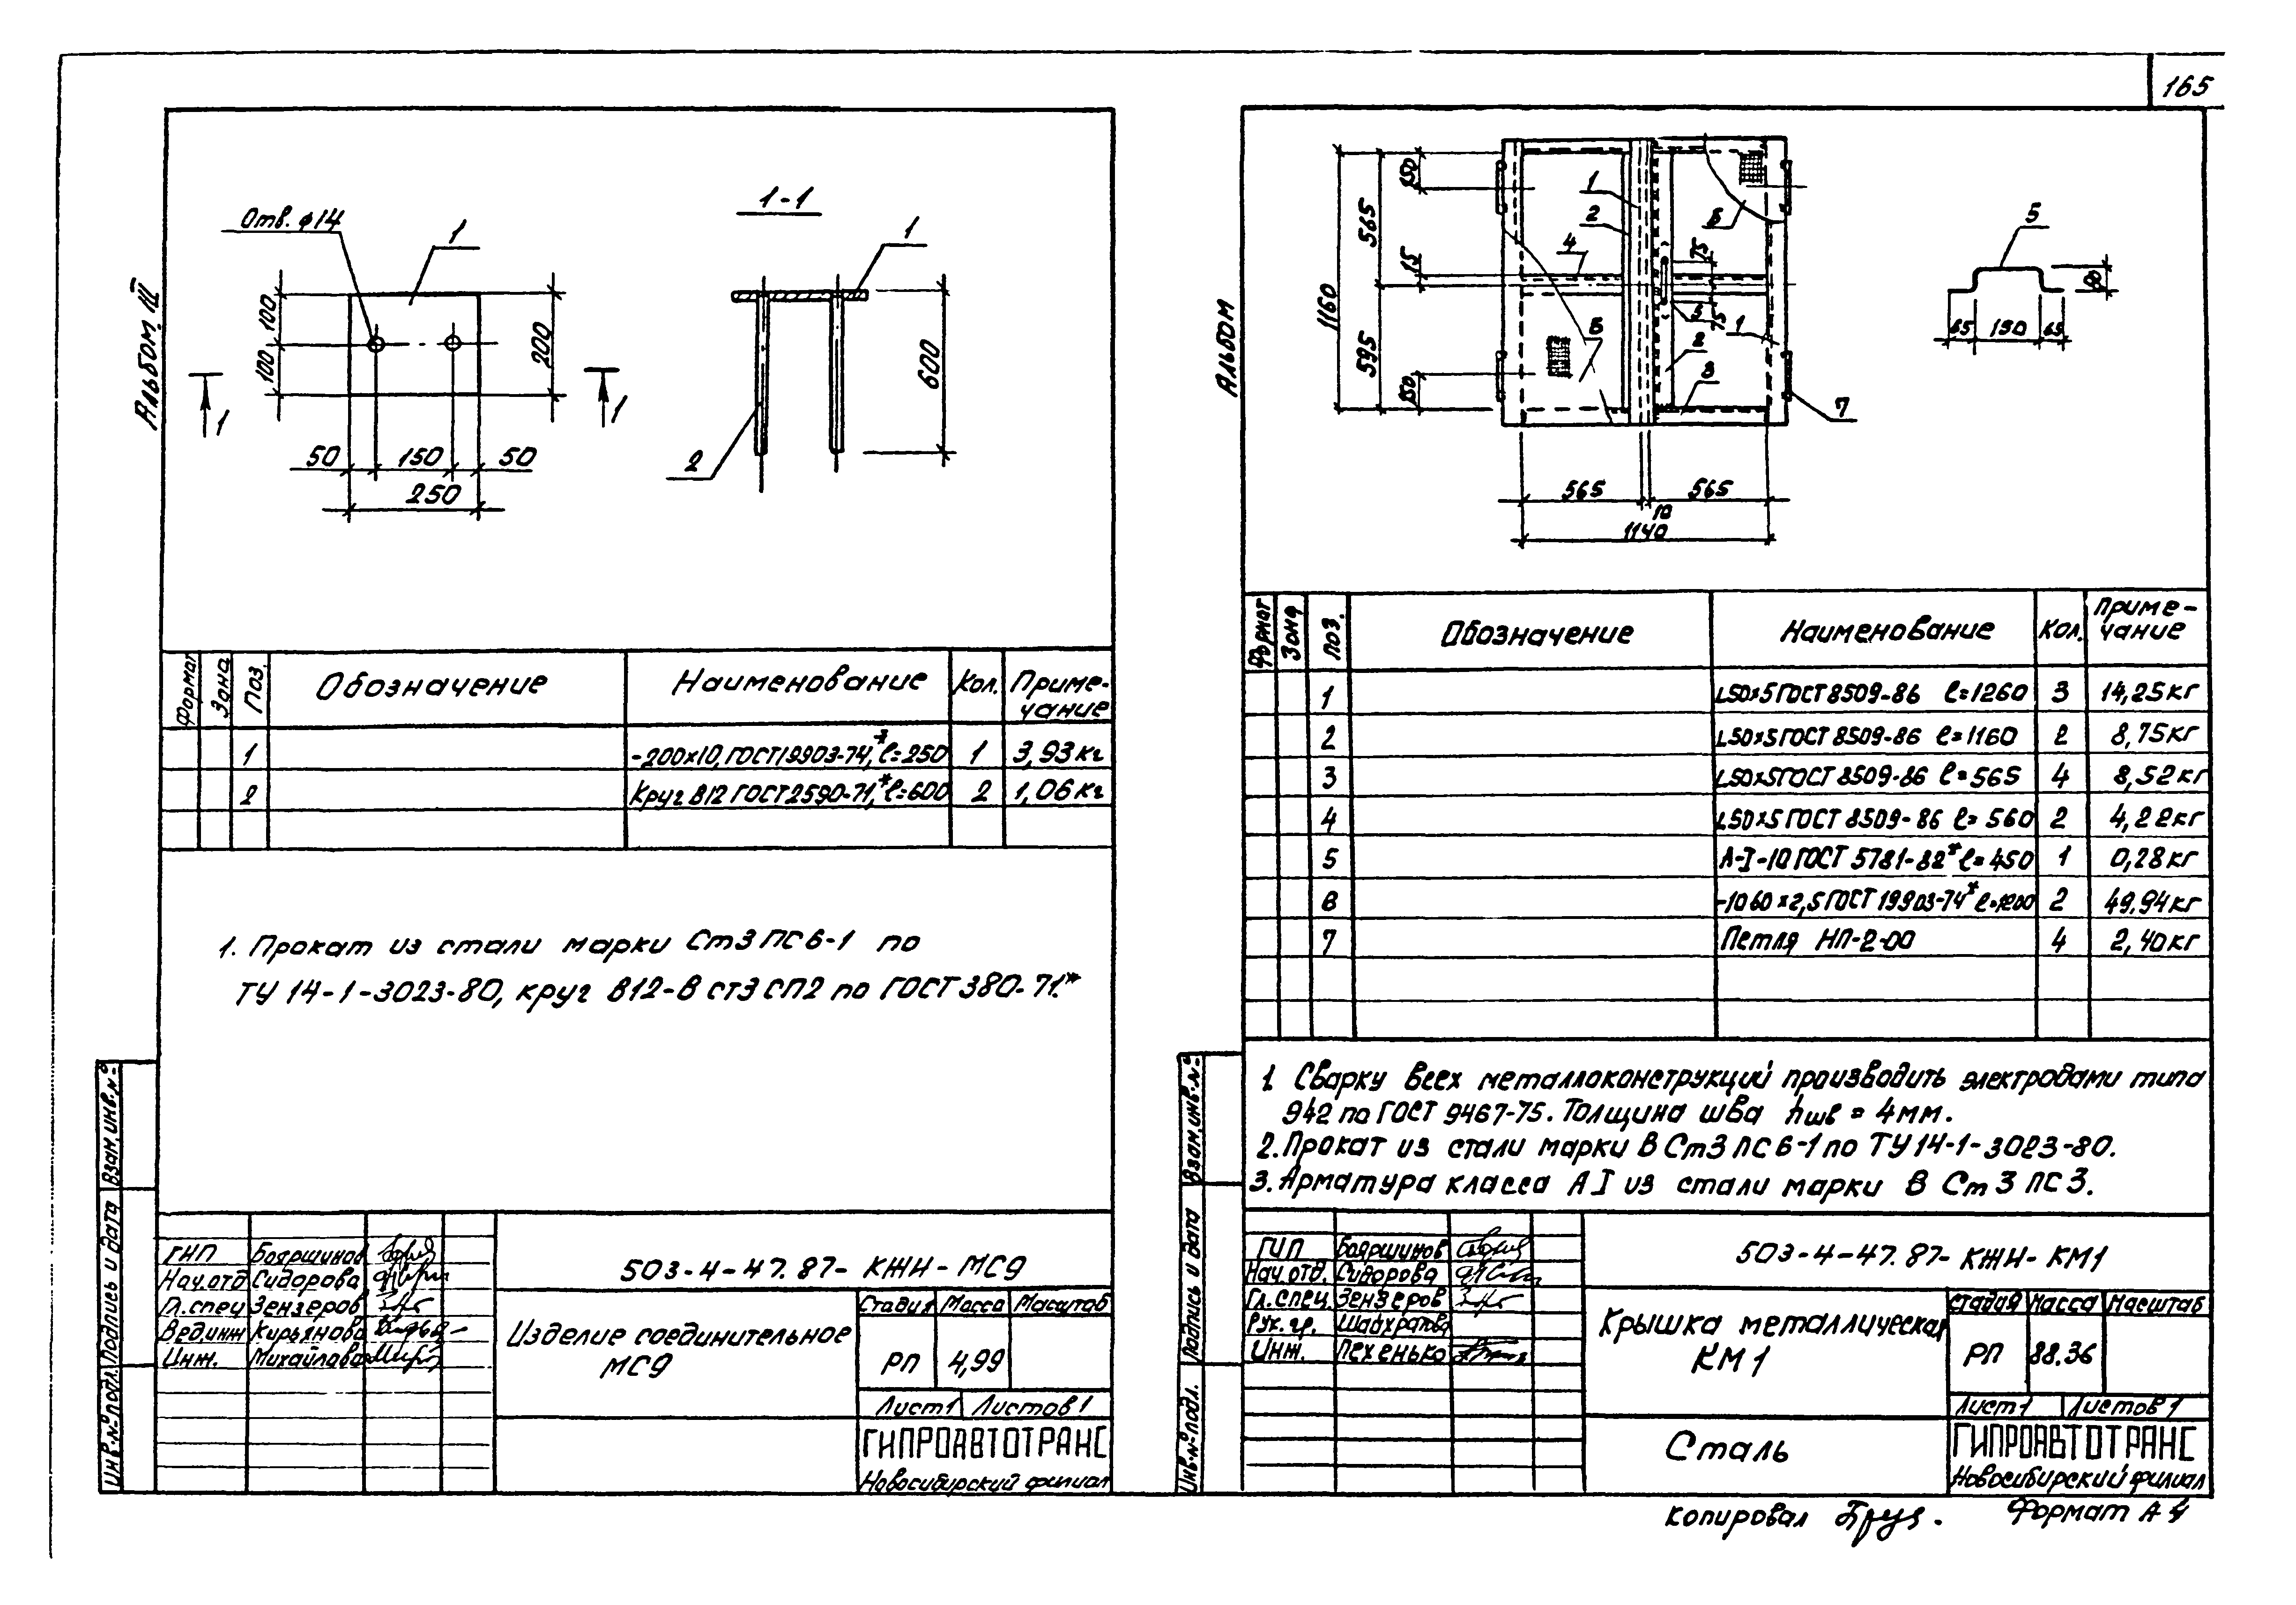 165
Альбом III
Отв. ϕ14
1
1-1
1
100
100
200
600
1
1
2
50
150
50
250
Формат
Зона
Поз.
Обозначение
Наименование
Кол.
Приме-
чание
1
-200х10, ГОСТ19903-74,* ℓ=250
1
3,93кг
2
Круг В12 ГОСТ2590-71,* ℓ=600
2
1,06кг
1. Прокат из стали марки Ст3 ПС6-1 по
ТУ 14-1-3023-80, круг В12-В ст3 СП2 по ГОСТ 380-71.*
Взам. инв. №
Подпись и дата
Инв. № подл.
ГИП Бояршинов
Нач.отд Сидорова
Гл.спец Зензеров
Вед.инж Кирьянова
Инж. Михайлова
503-4-47.87- КЖИ-МС9
Изделие соединительное
МС9
Стадия Масса Масштаб
РП 4,99
Лист1 Листов1
ГИПРОАВТОТРАНС
Новосибирский филиал
Альбом
1160
565
595
150
15
150
1
2
4
6
5
75
75
6
1
2
3
7
565
565
10
1140
5
80
65
150
65
Формат
Зона
Поз.
Обозначение
Наименование
Кол.
Приме-
чание
1
L50×5 ГОСТ 8509-86 ℓ=1260
3
14,25кг
2
L50×5 ГОСТ 8509-86 ℓ=1160
2
8,75кг
3
L50×5 ГОСТ 8509-86 ℓ=565
4
8,52кг
4
L50×5 ГОСТ 8509-86 ℓ=560
2
4,22кг
5
А-I-10 ГОСТ 5781-82* ℓ=450
1
0,28кг
6
-1060×2,5 ГОСТ 19903-74* ℓ=1200
2
49,94кг
7
Петля НП-2-00
4
2,40кг
1 Сварку всех металлоконструкций производить электродами типа
Э42 по ГОСТ 9467-75. Толщина шва hшв = 4мм.
2. Прокат из стали марки В Ст3 ПС 6-1 по ТУ14-1-3023-80.
3. Арматура класса АI из стали марки В Ст 3 ПС 3.
Взам. инв. №
Подпись и дата
Инв. № подл.
ГИП Бояршинов
Нач. отд. Сидорова
Гл. спец. Зензеров
Рук. гр.
Инж. Пехенько
503-4-47.87- КЖИ-КМ1
Крышка металлическая
КМ1
Стадия Масса Масштаб
РП 88.36
Лист1 Листов1
Сталь
ГИПРОАВТОТРАНС
Новосибирский филиал
Копировал
Формат А4